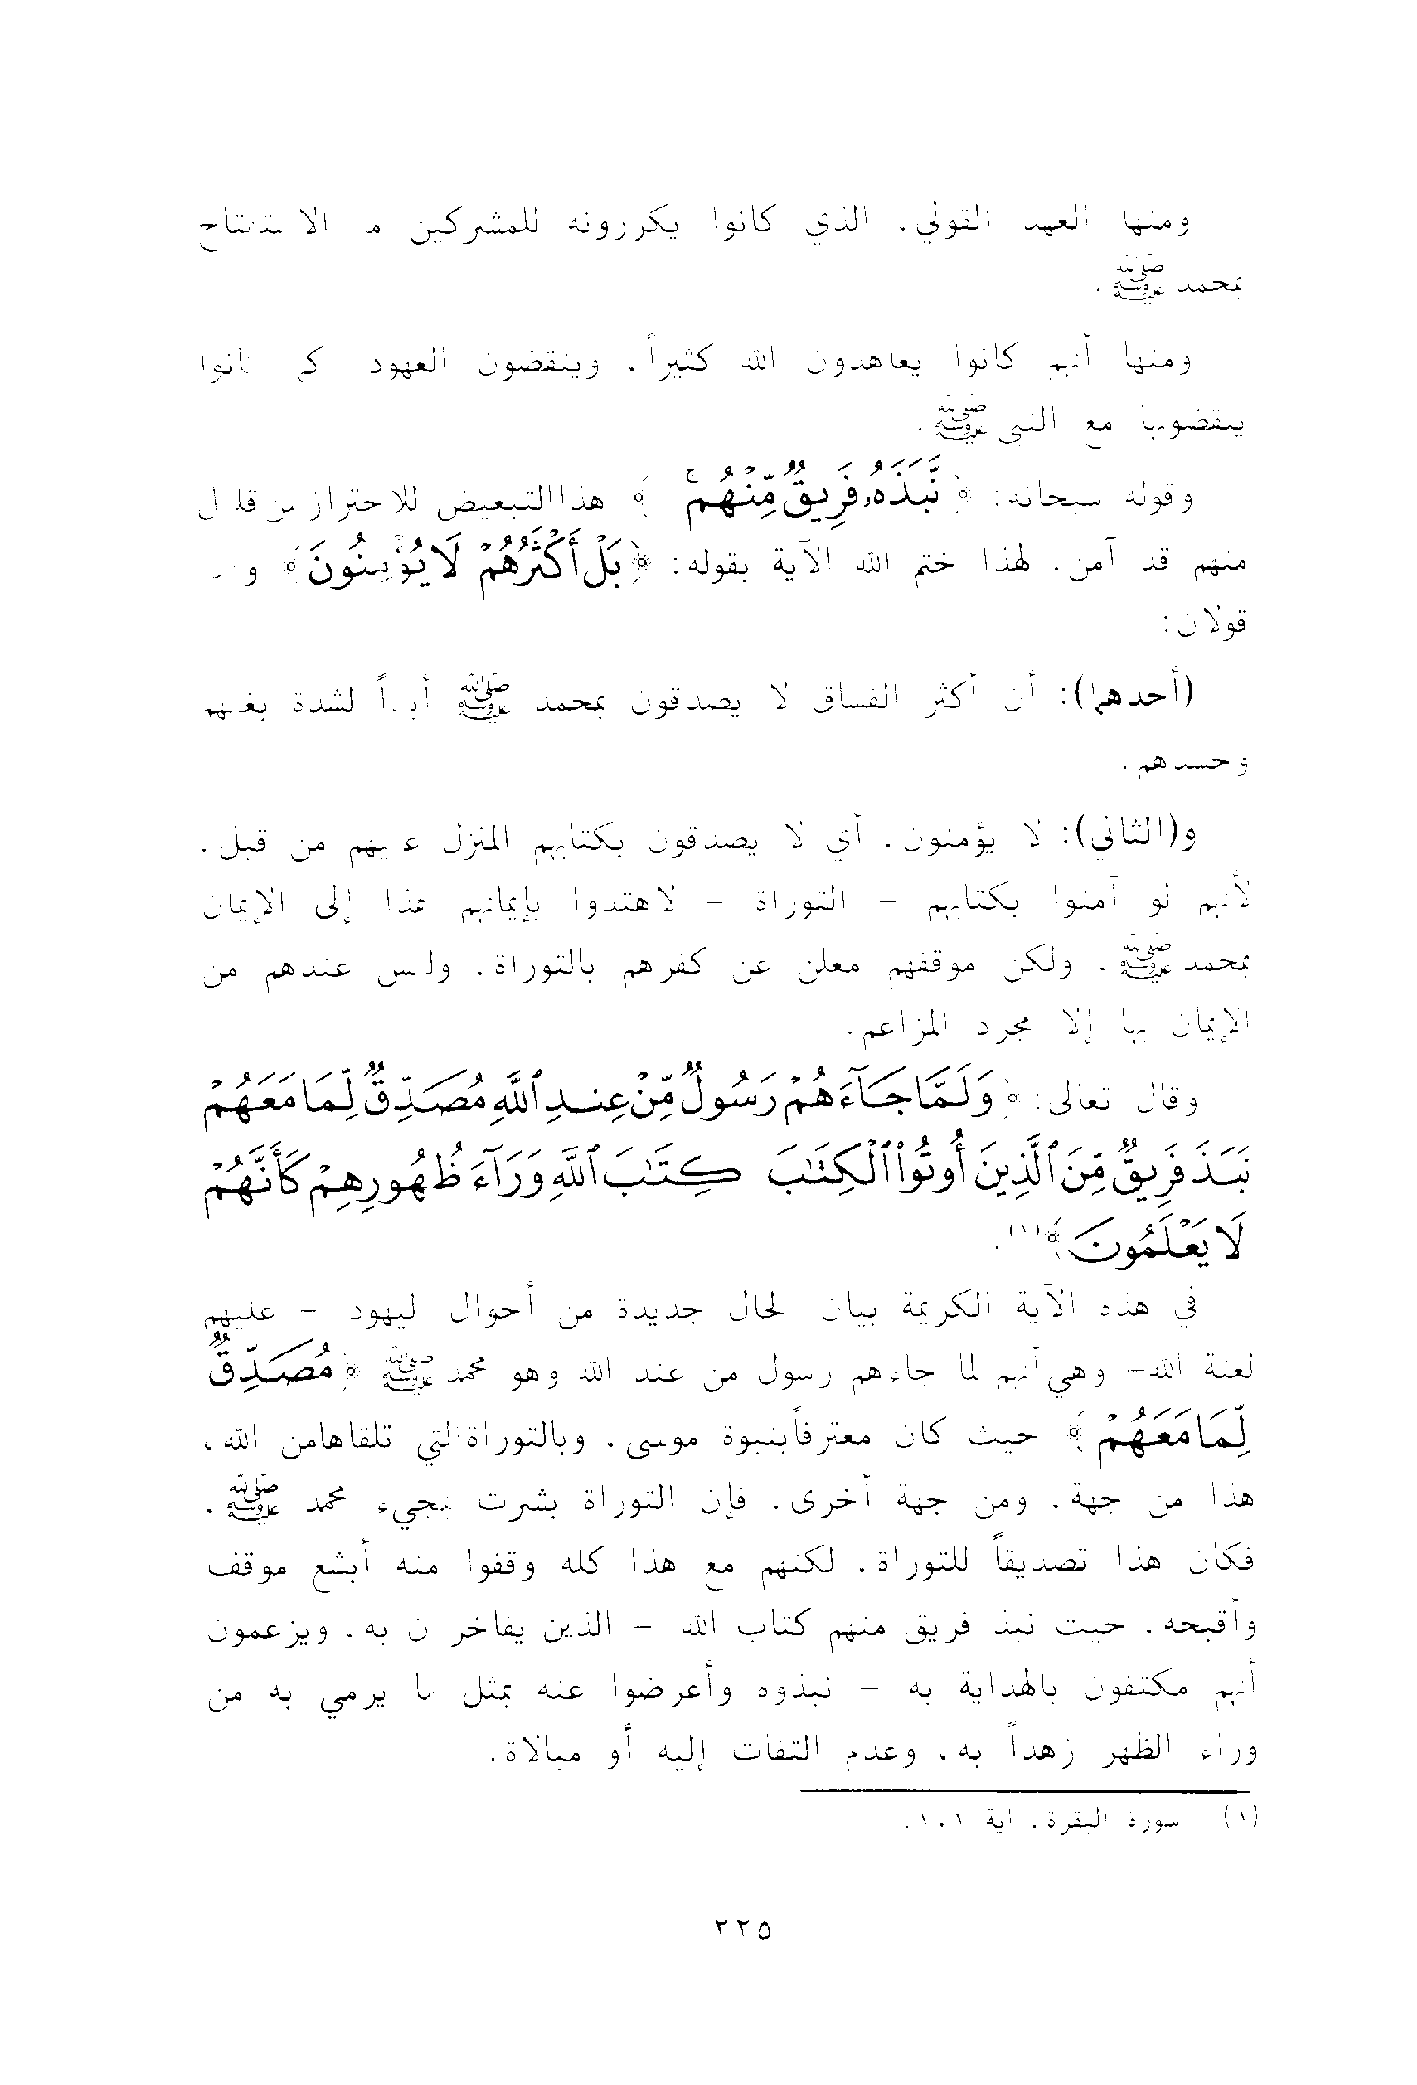 ومنها العهد القولي، الذي كانوا يكررونه للمشركين الاستفتاح
بمحمد ﷺ.
ومنها أنهم كانوا يعاهدون الله كثيراً، وينقضون العهود كانوا
ينقضونها مع النبي ﷺ.
وقوله سبحانه: ﴿نَّبَذَهُۥ فَرِيقٌ مِّنْهُمۚ﴾ هذا التبعيض للاحتراز
منهم قد آمن. لهذا ختم الله الآية بقوله: ﴿بَلْ أَكْثَرُهُمْ لَا يُؤْمِنُونَ﴾
قولان:
(أحدهما): أن أكثر الفساق لا يصدقون بمحمد ﷺ أبداً لشدة بغيهم
وحسدهم.
و(الثاني): لا يؤمنون، أي لا يصدقون بكتابهم المنزل عليهم من قبل.
لأنهم لو آمنوا بكتابهم – التوراة – لاهتدوا بإيمانهم هذا إلى الإيمان
بمحمد ﷺ. ولكن موقفهم معلن عن كفرهم بالتوراة. وليس عندهم من
الإيمان بها إلا مجرد المزاعم.
وقال تعالى: ﴿وَلَمَّا جَآءَهُمْ رَسُولٌ مِّنْ عِندِ ٱللَّهِ مُصَدِّقٌ لِّمَا مَعَهُمْ
نَبَذَ فَرِيقٌ مِّنَ ٱلَّذِينَ أُوتُوا۟ ٱلْكِتَٰبَ كِتَٰبَ ٱللَّهِ وَرَآءَ ظُهُورِهِمْ كَأَنَّهُمْ
لَا يَعْلَمُونَ﴾(١).
في هذه الآية الكريمة بيان لحال جديدة من أحوال اليهود – عليهم
لعنة الله – وهي أنهم لما جاءهم رسول من عند الله وهو محمد ﷺ ﴿مُصَدِّقٌ
لِّمَا مَعَهُمْ﴾ حيث كان معترفاً بنبوة موسى، وبالتوراة التي تلقاها من الله،
هذا من جهة. ومن جهة أخرى. فإن التوراة بشرت بمجيء محمد ﷺ.
فكان هذا تصديقاً للتوراة. لكنهم مع هذا كله وقفوا منه أبشع موقف
وأقبحه. حيث نبذ فريق منهم كتاب الله – الذين يفاخرون به، ويزعمون
أنهم مكتفون بالهداية به – نبذوه وأعرضوا عنه بمثل ما يرمي به من
وراء الظهر زهداً به، وعدم التفات إليه أو مبالاة.
(١) سورة البقرة. آية ١٠١.
٢٢٥